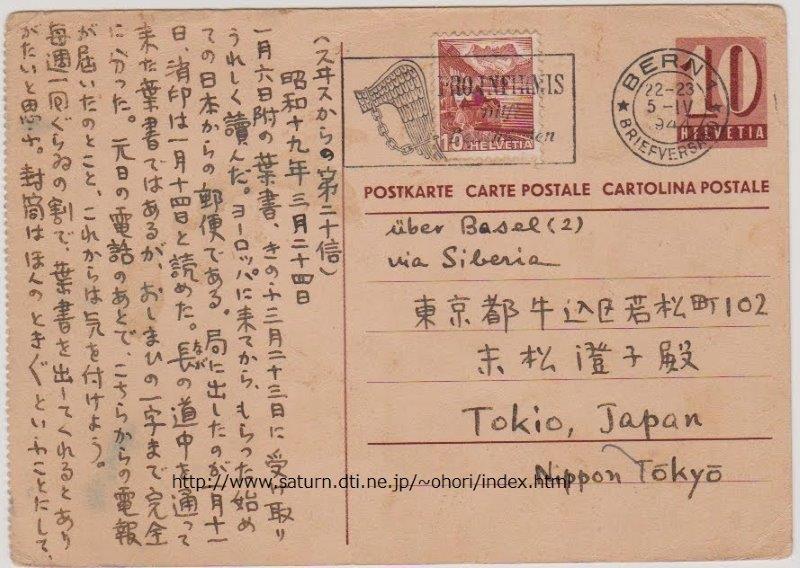 (スヰスからの第二十信)
昭和十九年三月二十四日
一月六日附の葉書、きのふ三月二十三日に受け取り
うれしく讀んだ。ヨーロッパに来てから、もらった始め
ての日本からの郵便である。局に出したのが一月十一
日、消印は一月十四日と読めた。長の道中を通って
なが
来た葉書ではあるが、おしまひの一字まで完全
に分った。元日の電話のあとで、こちらからの電報
が届いたのとこと、これからは気を付けよう。
毎週一回ぐらゐの割で、葉書を出してくれるとあり
がたいと思ふ。封筒はほんのときぐといふことにして、
PRO INFIRMIS
10 HELVETIA
BERN 1
22-23
5-IV
944
BRIEFVERSAND
10
HELVETIA
POSTKARTE CARTE POSTALE CARTOLINA POSTALE
über Basel (2)
via Siberia
東京都牛込区若松町102
末松澄子殿
Tokio, Japan
Nippon Tōkyō
http://www.saturn.dti.ne.jp/~ohori/index.html